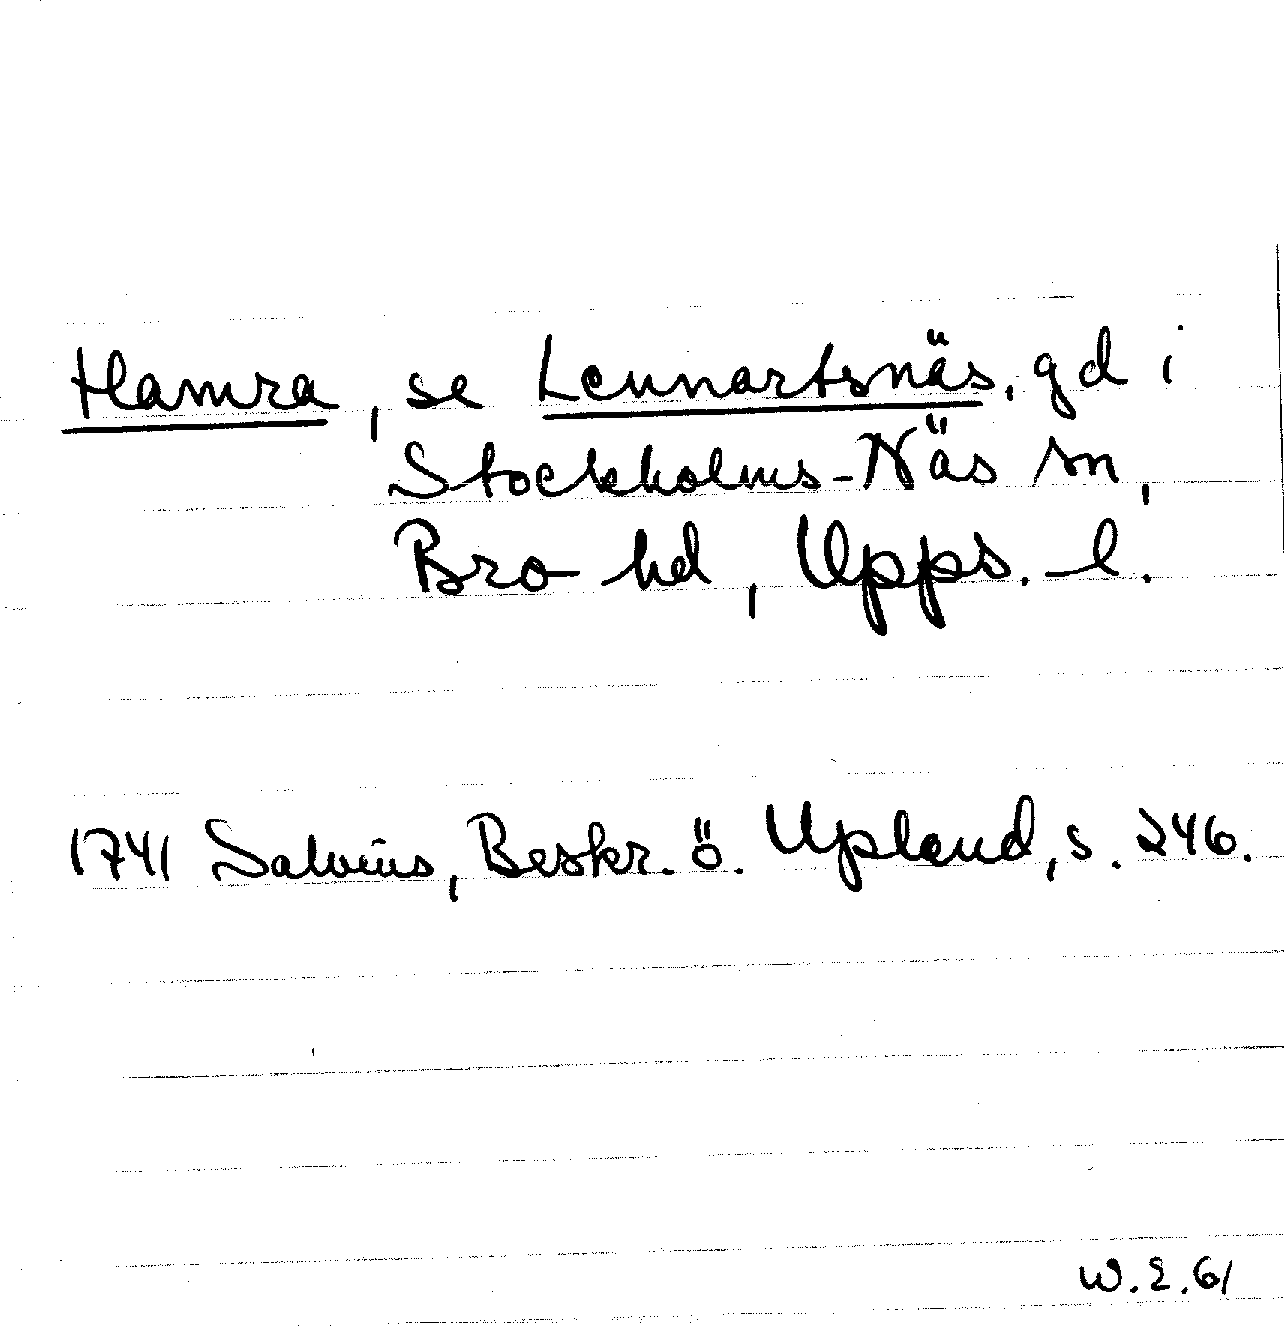 Hamra, se Lennartsnäs, gd i
Stockholms-Näs sn,
Bro hd, Upps. l.
1741 Salvius, Beskr. ö. Upland, s. 246.
W.E.61